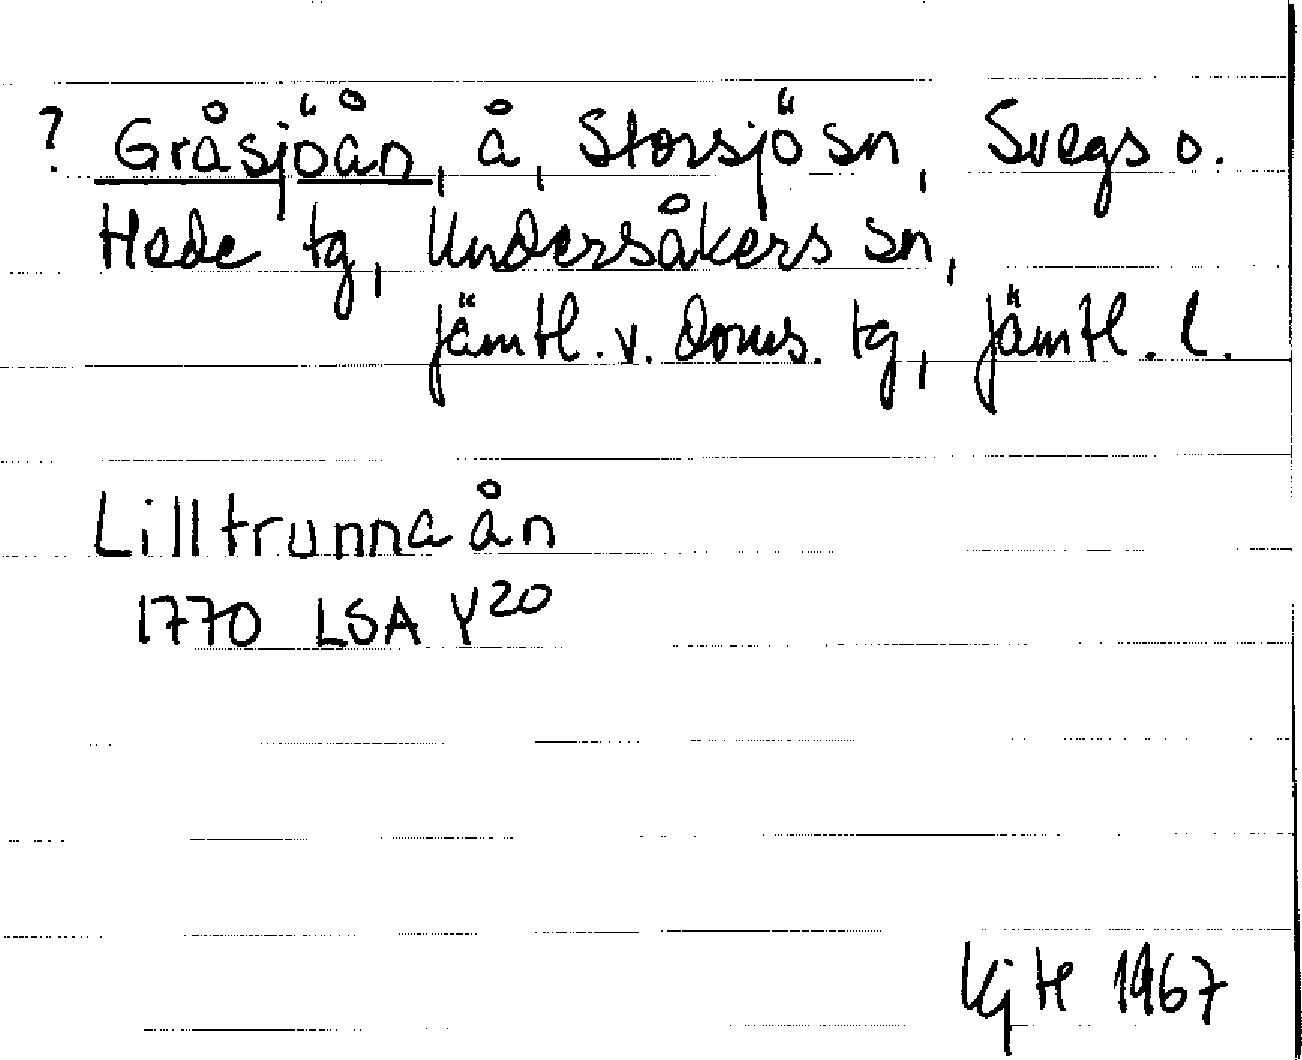 ? Gråsjöån, å, Storsjö sn, Svegs o.
Hede tg, Undersåkers sn,
Jämtl. v. doms. tg, Jämtl. l.
Lilltrunnaån
1770 LSA Y20
KjH 1967